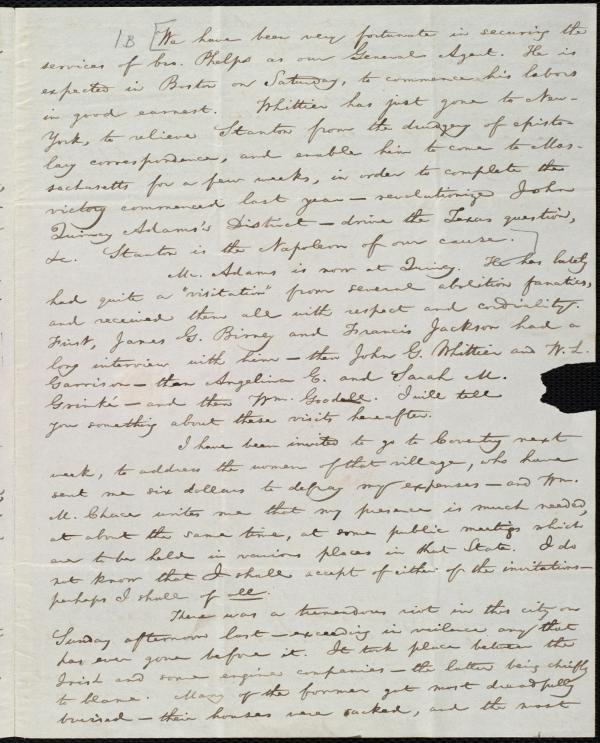 1B [We have been very fortunate in securing the
services of bro. Phelps as our General Agent. He is
expected in Boston on Saturday, to commence his labors
in good earnest. Whittier has just gone to New-
York, to relieve Stanton from the drudgery of episto-
lary correspondence, and enable him to come to Mas-
sachusetts for a few weeks, in order to complete the
victory commenced last year — revolutionize John
Quincy Adams's District — drive the Texas question,
&c. Stanton is the Napoleon of our cause.]
Mr. Adams is now at Quincy. He has lately
had quite a "visitation" from several abolition fanatics,
and received them all with respect and cordiality.
First, James G. Birney and Francis Jackson had a
long interview with him — then John G. Whittier and W. L.
Garrison — then Angelina E. and Sarah M.
Grimké — and then Wm. Goodell. I will tell
you something about these visits hereafter.
I have been invited to go to Coventry next
week, to address the women of that village, who have
sent me six dollars to defray my expenses — and Wm.
M. Chace writes me that my presence is much needed,
at about the same time, at some public meetings which
are to be held in various places in that State. I do
not know that I shall accept of either of the invitations —
perhaps I shall of all.
There was a tremendous riot in this city on
Sunday afternoon last — exceeding in violence any that
has ever gone before it. It took place between the
Irish and some engine companies — the latter being chiefly
to blame. Many of the former got most dreadfully
bruised — their houses were sacked, and the most